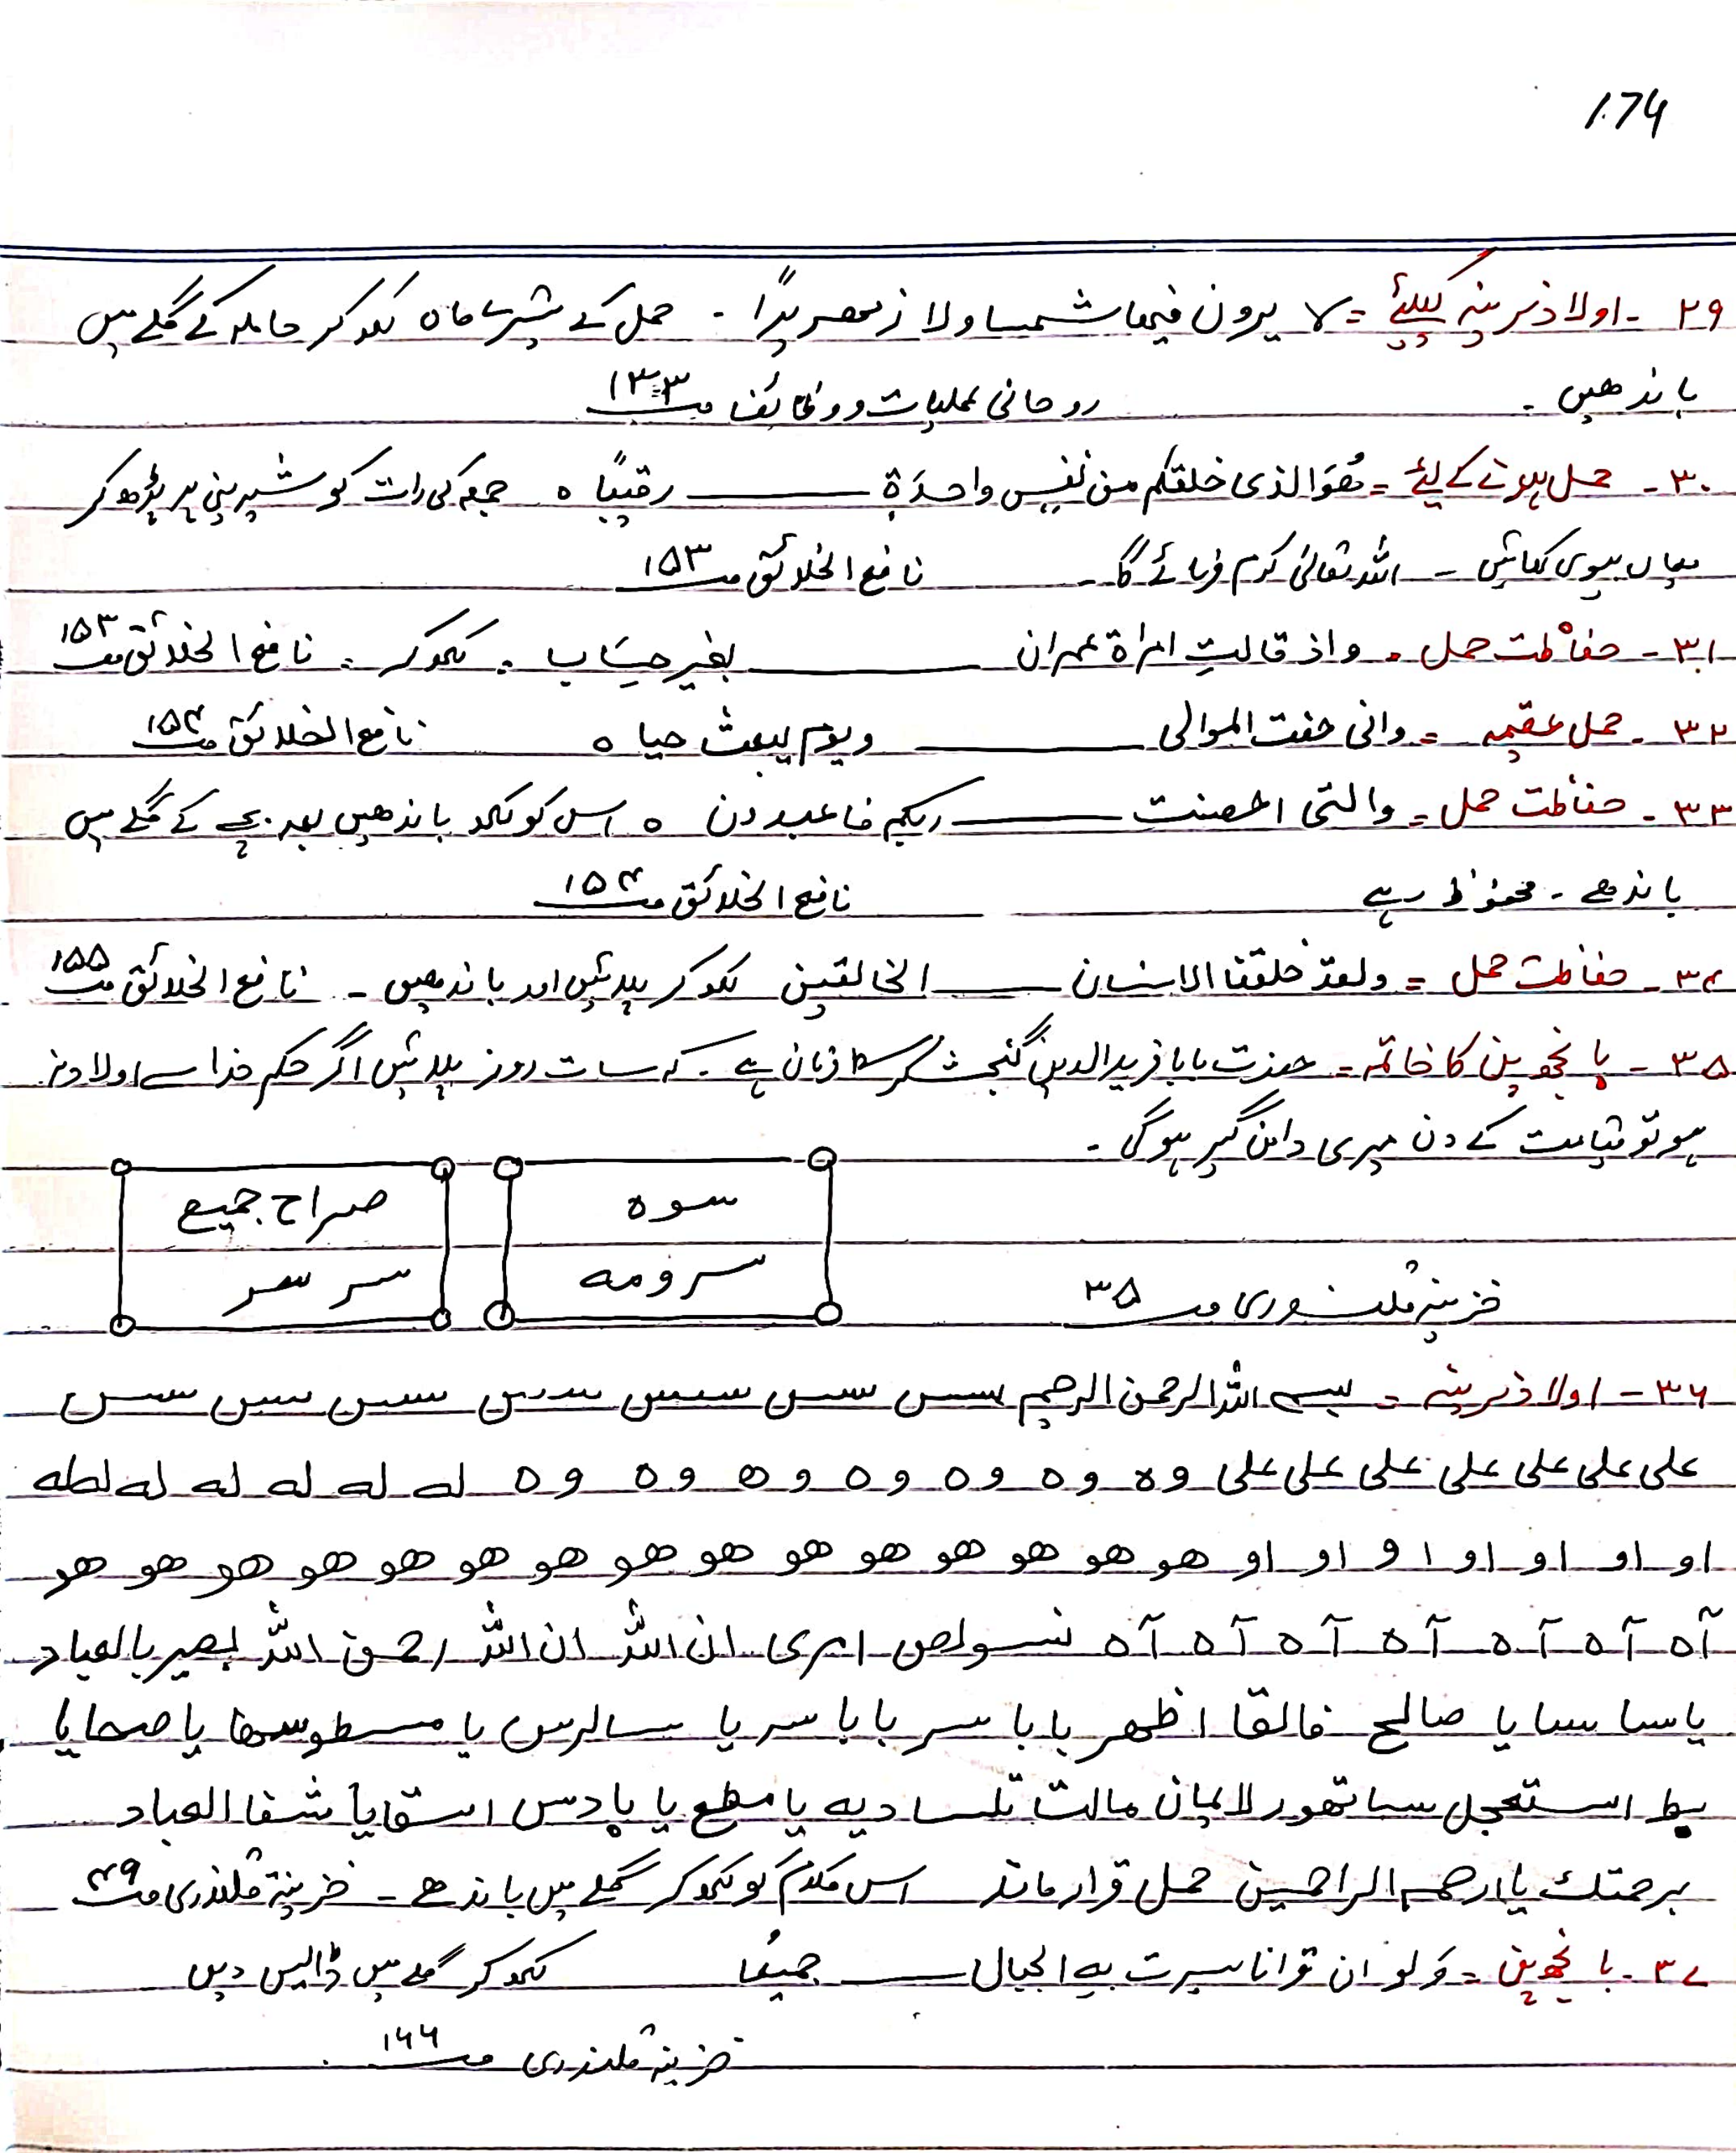 174
۲۹ ۔ اولاد نرینہ کیلئے = لا یرون فیھا شمسا ولا زمھریرًا ۔ حمل کے تیسرے ماہ لکھ کر حاملہ کے گلے میں
باندھیں ۔ روحانی عملیات و وظائف صـ ۱۳۳
۳۰ ۔ حمل ہونے کے لیئے = ھُوَ الذی خلقکم من نفسٍ واحدَۃٍ ــــــ رقیبًا ہ جمعہ کی رات کو شیرینی پر پڑھ کر
میاں بیوی کھائیں ۔ اللہ تعالیٰ کرم فرمائے گا ۔ نافع الخلائق صـ ۱۵۳
۳۱ ۔ حفاظت حمل ۔ واذ قالتِ امراۃ عمران ــــــ بغیر حِسَاب ۔ لکھ کر ۔ نافع الخلائق صـ ۱۵۳
۳۲ ۔ حمل عقیمہ = وانی خفت الموالی ــــــ ویوم یبعث حیا ہ نافع الخلائق صـ ۱۵۴
۳۳ ۔ حفاظت حمل = والتی احصنت ــــــ ربکم فاعبدون ہ اس کو لکھ باندھیں بعد بچے کے گلے میں
باندھے ۔ محفوظ رہے نافع الخلائق صـ ۱۵۴
۳۴ ۔ حفاظت حمل = ولقد خلقنا الانسان ــــــ الخالقین لکھ کر پلائیں اور باندھیں ۔ نافع الخلائق صـ ۱۵۵
۳۵ ۔ بانجھ پن کا خاتمہ = حضرت بابا فرید الدین گنج شکر کا فرمان ہے ۔ کہ سات روز پلائیں اگر حکم خدا سے اولاد نہ
ہو تو قیامت کے دن میری دامن گیر ہوگی ۔
سوہ صراح جمیع
سرومہ سر سر
خزینہ قلندری صـ ۳۵
۳۶ ۔ اولاد نرینہ = بسم اللہ الرحمن الرحیم سس سس سس سس سس سس سس سس
علی علی علی علی علی علی علی وہ وہ وہ وہ وہ وہ وہ لہ لہ لہ لہ لہ لہ لطہ
او او او او او او او ھو ھو ھو ھو ھو ھو ھو ھو ھو ھو ھو ھو ھو ھو ھو
آہ آہ آہ آہ آہ آہ آہ آہ امری ان اللہ ان اللہ رحمن اللہ بصیر بالعباد
یا سا سا یا صالح فالقا اظھر یا با سر یا با سر یا سالرس یا مسطوسھا یا صحایا
یط استعجل ساتھور لایمان مالت تلسادیہ یا مطع یا پادس استقایا شفا العباد
برحمتک یا ارحم الراحمین حمل قرار ماند اس کلام کو لکھ کر گلے میں باندھے ۔ خزینہ قلندری صـ ۴۹
۳۷ ۔ بانجھ پن = وَلو ان قرانا سیرت بِہِ الجبال ــــــ جمیعًا لکھ کر گلے میں ڈالیں دیں
خزینہ قلندری صـ ۱۶۶